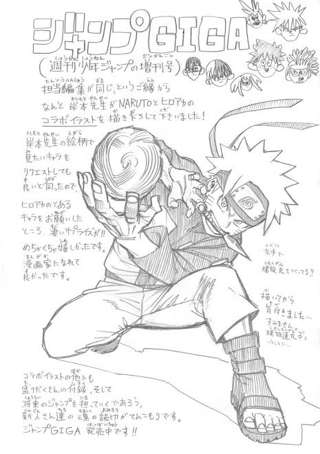 ジャンプGIGA
(週刊少年ジャンプの増刊号)
担当編集が同じ、というご縁から
なんと岸本先生がNARUTOとヒロアカの
コラボイラストを描き下ろして下さいました!
岸本先生の絵柄で
見たいキャラを
リクエストしても
良いと伺ったので、
ヒロアカのとある
キャラをお願いした
ところ、
めちゃくちゃ嬉しかったです。
漫画家になれて
良かったです。
描いてから
気付きました…
すみません。
コラボイラストの他にも
盛りだくさんの付録、そして
将来のジャンプを担っていくであろう、
新人さん達の渾身の読切がてんこもりです。
ジャンプGIGA 発売中です!!